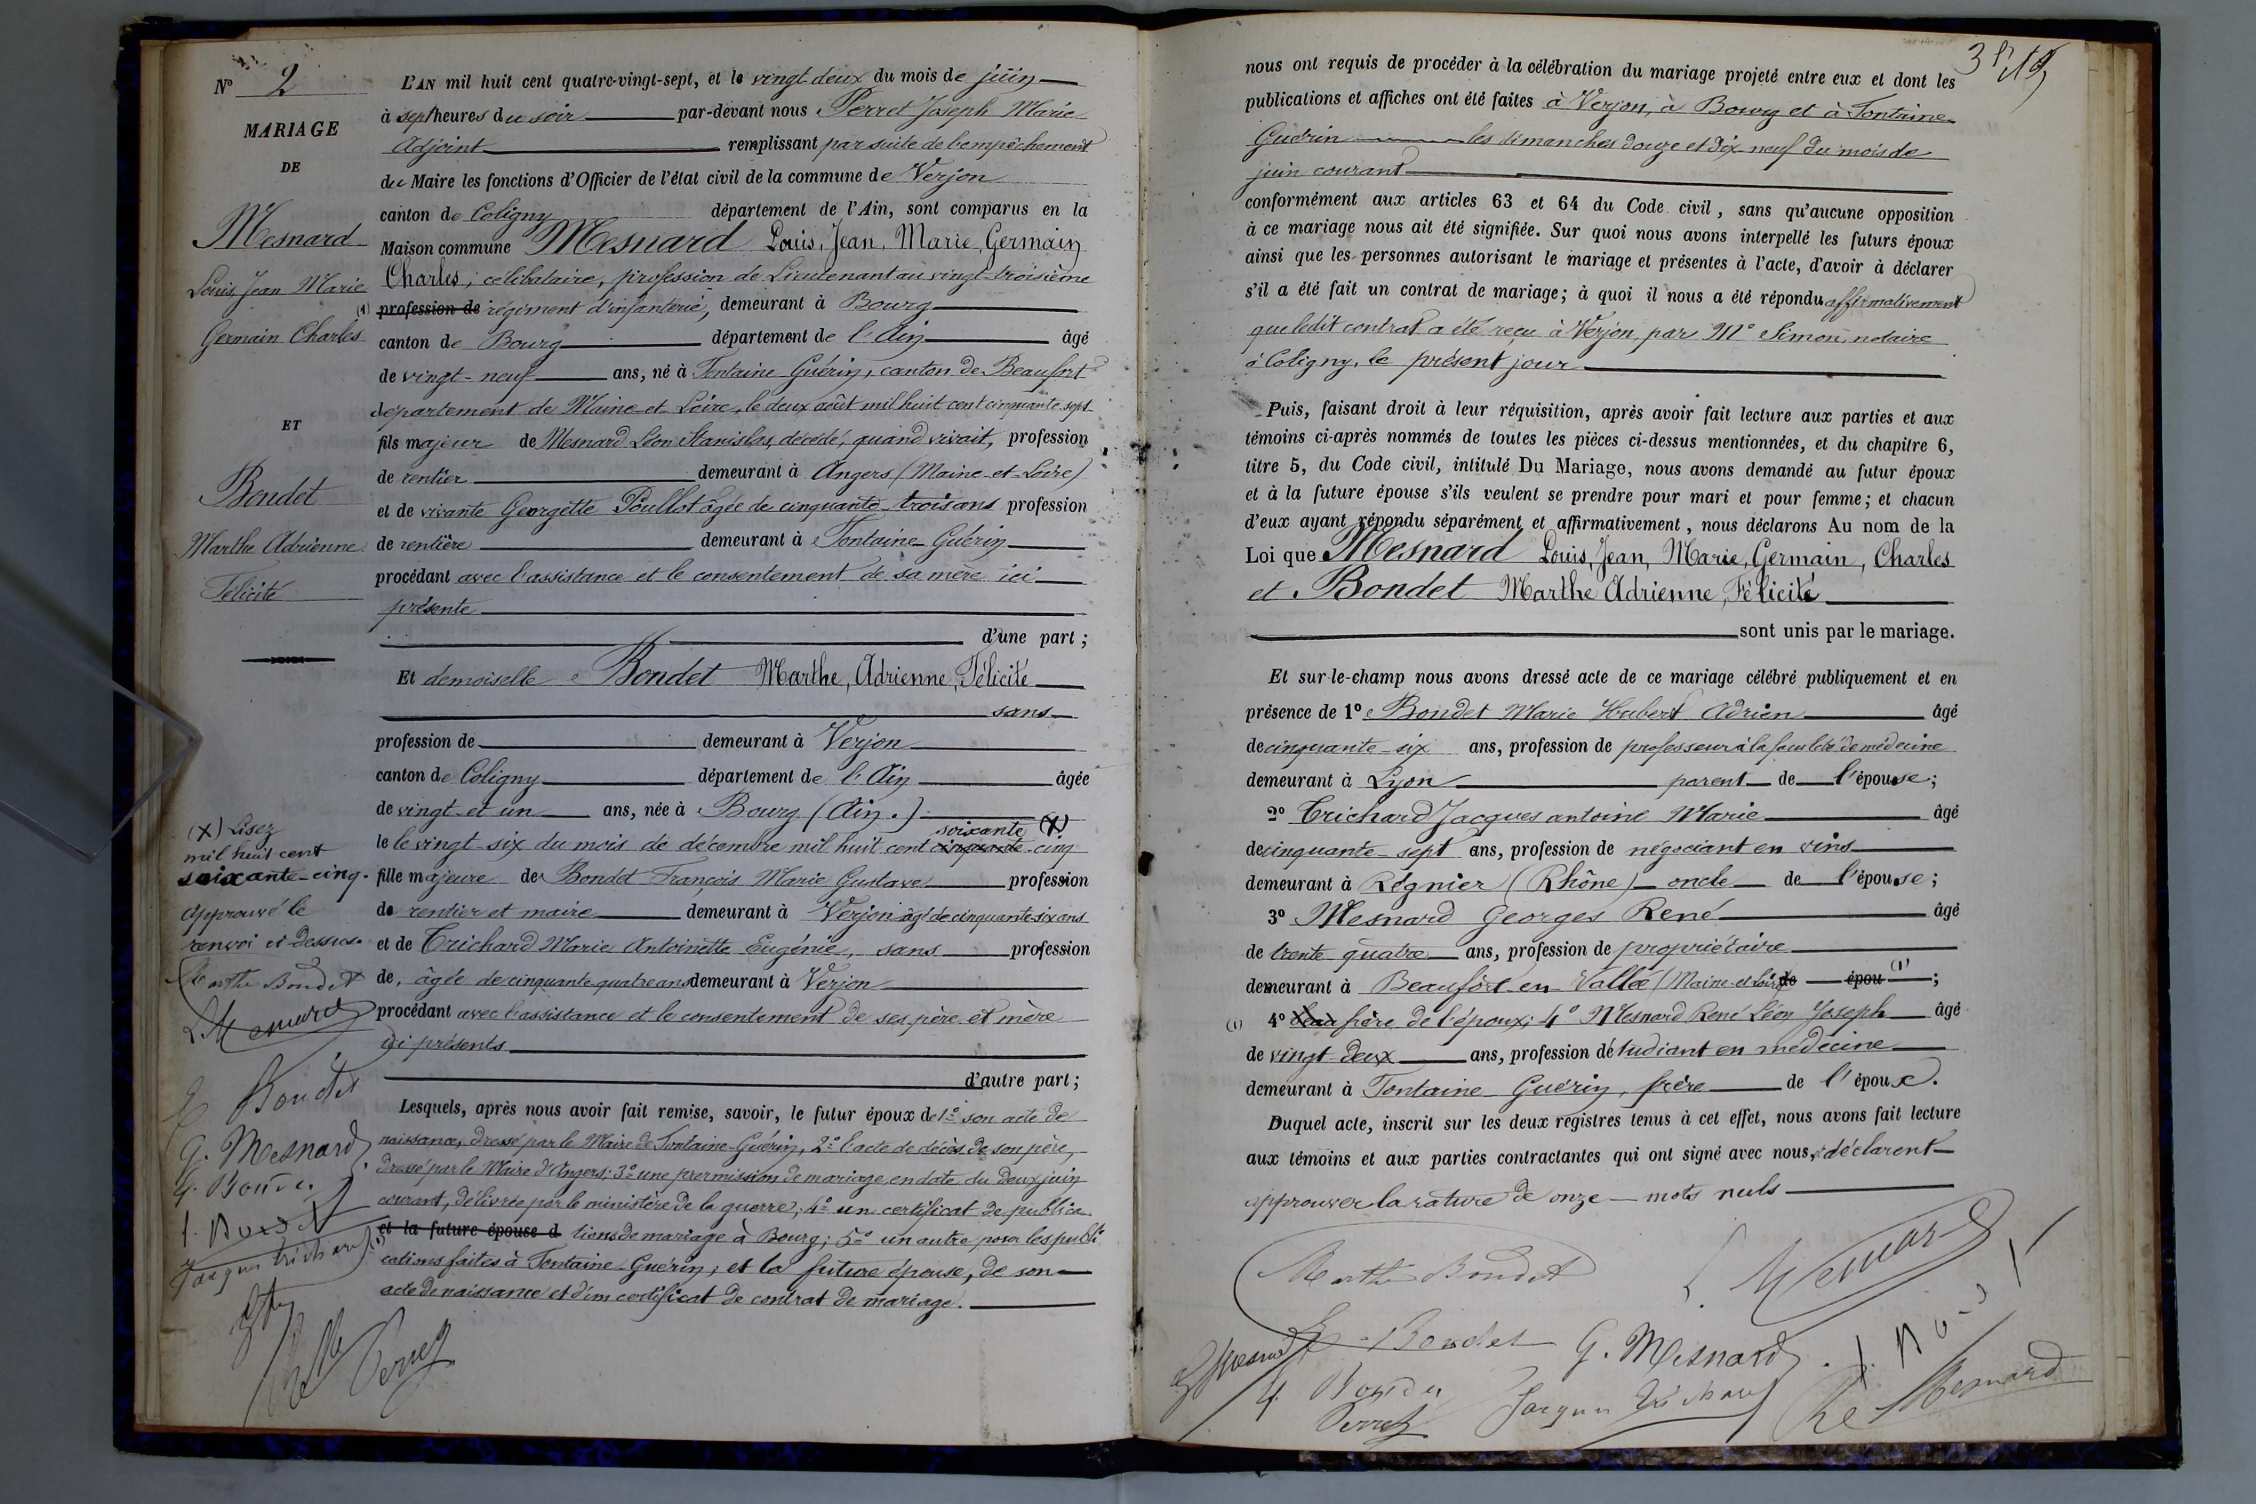 Nº 2
MARIAGE
DE
Mesnard
Louis, Jean Marie
Germain Charles
ET
Bondet
Marthe Adrienne
Félicité
(X) Lisez
mil huit cent
soixante-cinq.
Approuvé le
renvoi ci-dessus.
Marthe Bondet
L. Mesnard
Bondet
G. Mesnard
Jacques Trichard
Perret
L'AN mil huit cent quatre-vingt-sept, et le vingt-deux du mois de juin
à sept heures du soir par-devant nous Perret Joseph Marie
Adjoint remplissant par suite de l'empêchement
du Maire les fonctions d'Officier de l'état civil de la commune de Verjon
canton de Coligny département de l'Ain, sont comparus en la
Maison commune Mesnard Louis, Jean, Marie, Germain
Charles, célibataire, profession de Lieutenant au vingt-troisième
(1) profession de régiment d'infanterie, demeurant à Bourg
canton de Bourg département de l'Ain âgé
de vingt-neuf ans, né à Fontaine-Guérin, canton de Beaufort
département de Maine-et-Loire, le deux août mil huit cent cinquante-sept
fils majeur de Mesnard Léon Stanislas, décédé, quand vivait, profession
de rentier demeurant à Angers (Maine-et-Loire)
et de vivante Georgette Poullot âgée de cinquante-trois ans profession
de rentière demeurant à Fontaine-Guérin
procédant avec l'assistance et le consentement de sa mère ici
présente
d'une part ;
Et demoiselle Bondet Marthe, Adrienne, Félicité
sans
profession de demeurant à Verjon
canton de Coligny département de l'Ain âgée
de vingt et un ans, née à Bourg (Ain.)
soixante (X)
le le vingt-six du mois de décembre mil huit cent cinquante-cinq
fille majeure de Bondet François Marie Gustave profession
de rentier et maire demeurant à Verjon âgé de cinquante-six ans
et de Trichard Marie Antoinette Eugénie, sans profession
de, âgée de cinquante quatre ans demeurant à Verjon
procédant avec l'assistance et le consentement de ses père et mère
ici présents
d'autre part ;
Lesquels, après nous avoir fait remise, savoir, le futur époux de 1º son acte de
naissance, dressé par le Maire de Fontaine-Guérin, 2º l'acte de décès de son père,
dressé par le Maire d'Angers; 3º une permission de mariage en date du deux juin
courant, délivrée par le ministère de la guerre; 4º un certificat de publica-
et la future épouse d tions de mariage à Bourg; 5º un autre pour les publi
cations faites à Fontaine-Guérin, et la future épouse, de son
acte de naissance et d'un certificat de contrat de mariage.
nous ont requis de procéder à la célébration du mariage projeté entre eux et dont les
publications et affiches ont été faites à Verjon, à Bourg et à Fontaine
Guérin les dimanches douze et dix-neuf du mois de
juin courant
conformément aux articles 63 et 64 du Code civil, sans qu'aucune opposition
à ce mariage nous ait été signifiée. Sur quoi nous avons interpellé les futurs époux
ainsi que les personnes autorisant le mariage et présentes à l'acte, d'avoir à déclarer
s'il a été fait un contrat de mariage; à quoi il nous a été répondu affirmativement
que ledit contrat a été reçu à Verjon, par Mº Simon, notaire
à Coligny, le présent jour
Puis, faisant droit à leur réquisition, après avoir fait lecture aux parties et aux
témoins ci-après nommés de toutes les pièces ci-dessus mentionnées, et du chapitre 6,
titre 5, du Code civil, intitulé Du Mariage, nous avons demandé au futur époux
et à la future épouse s'ils veulent se prendre pour mari et pour femme; et chacun
d'eux ayant répondu séparément et affirmativement, nous déclarons Au nom de la
Loi que Mesnard Louis, Jean, Marie, Germain, Charles
et Bondet Marthe Adrienne, Félicité
sont unis par le mariage.
Et sur-le-champ nous avons dressé acte de ce mariage célébré publiquement et en
présence de 1º Bondet Marie Hubert Adrien âgé
de cinquante-six ans, profession de professeur à la faculté de médecine
demeurant à Lyon parent de l'épouse;
2º Trichard Jacques antoine Marie âgé
de cinquante-sept ans, profession de négociant en vins
demeurant à Régnier (Rhône) oncle de l'épouse;
3º Mesnard Georges René âgé
de trente quatre ans, profession de propriétaire
demeurant à Beaufort-en-Vallée (Maine-et-Loire) de épou (1) ;
(1) 4º beau frère de l'époux; 4º Mesnard René Léon Joseph âgé
de vingt-deux ans, profession d'étudiant en médecine
demeurant à Fontaine-Guérin, frère de l'époux.
Duquel acte, inscrit sur les deux registres tenus à cet effet, nous avons fait lecture
aux témoins et aux parties contractantes qui ont signé avec nous, déclarent
approuver la rature de onze mots nuls
Marthe Bondet
L. Mesnard
Bondet
G. Mesnard
Jacques Trichard
Mesnard
Perret